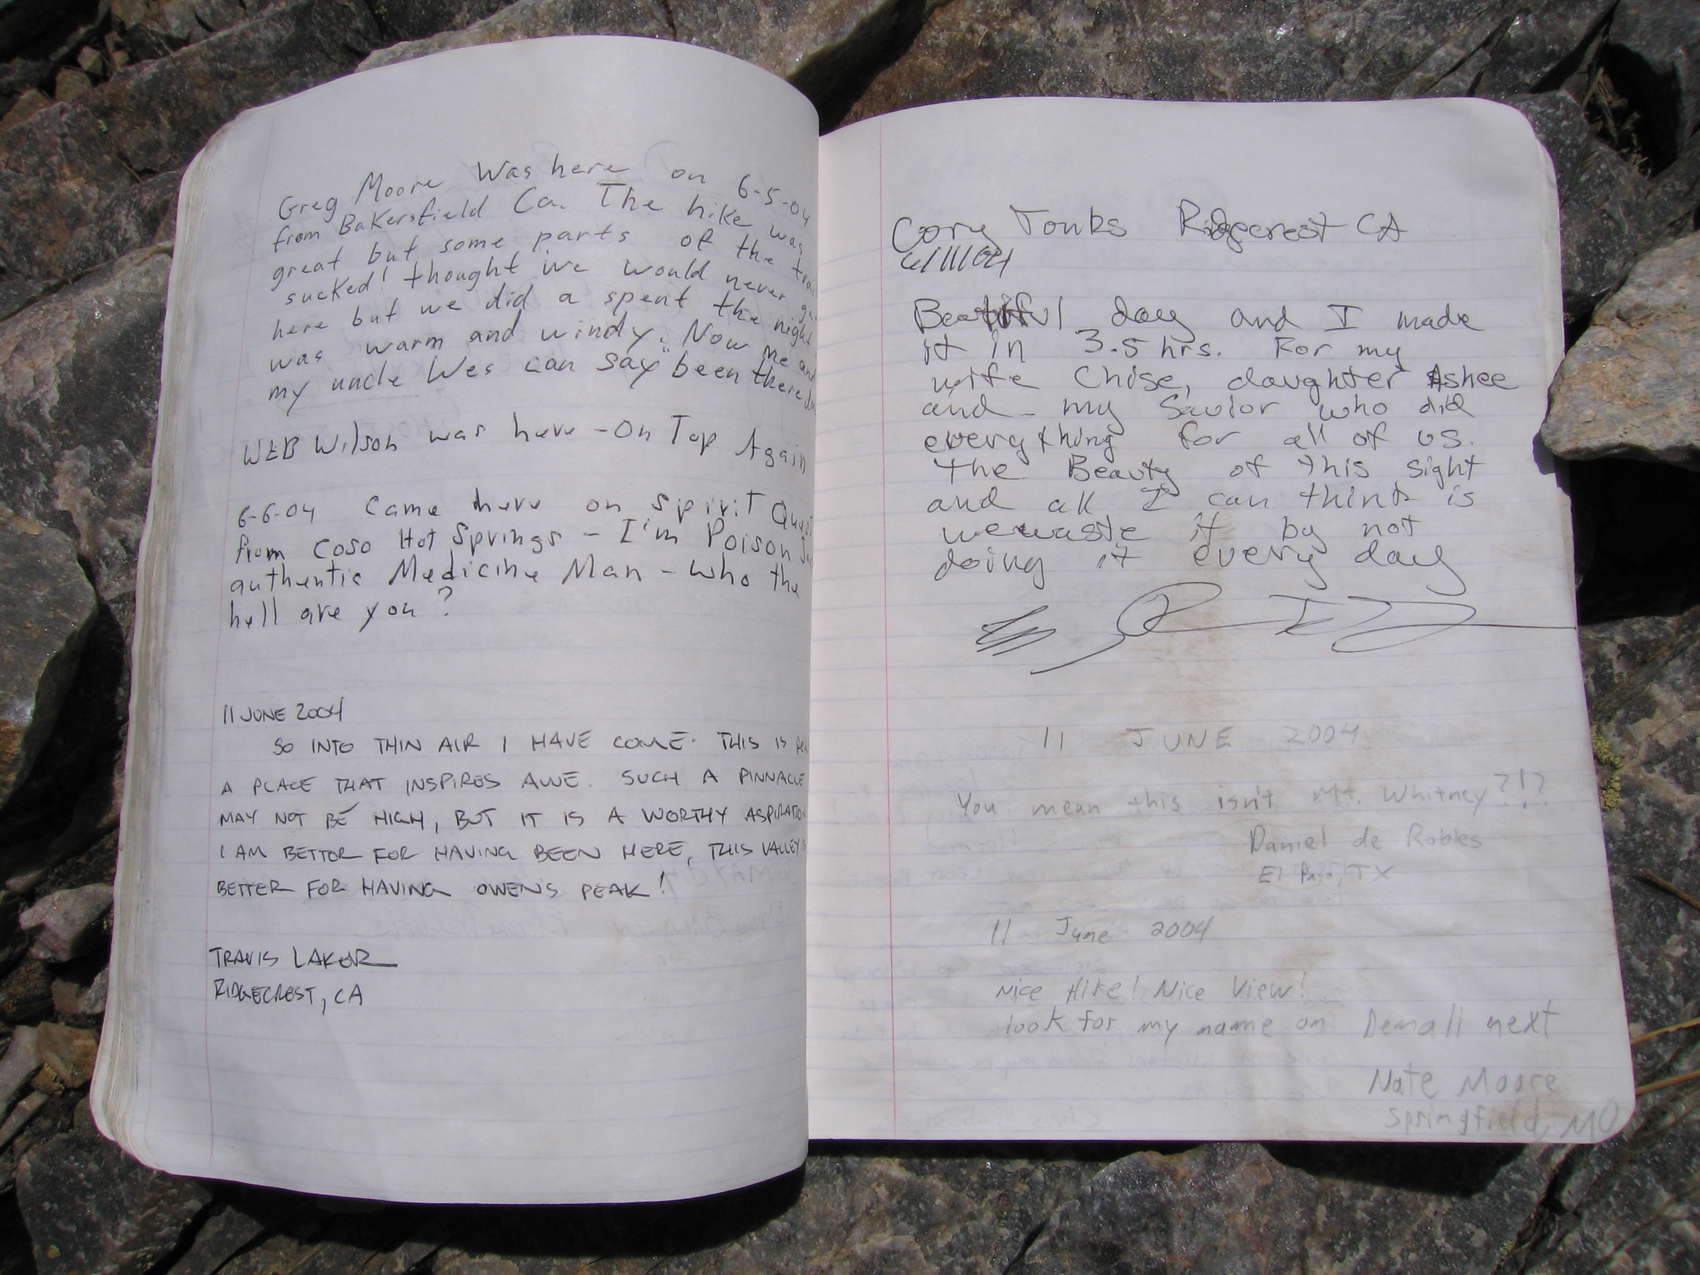 Greg Moore Was here on 6-5-04
from Bakersfield Ca. The hike was
great but some parts of the
sucked! thought we would never
here but we did a spent the night
was warm and windy. Now me and
my uncle Wes can say "been there
WEB Wilson was here - On Top Again
6-6-04 Came here on Spirit Quest
from Coso Hot Springs - I'm Poison
authentic Medicine Man - who the
hell are you?
11 JUNE 2004
SO INTO THIN AIR I HAVE COME. THIS IS
A PLACE THAT INSPIRES AWE. SUCH A PINNACLE
MAY NOT BE HIGH, BUT IT IS A WORTHY
I AM BETTER FOR HAVING BEEN HERE, THIS VALLEY
BETTER FOR HAVING OWENS PEAK!
TRAVIS LAKER
RIDGECREST, CA
Cory Tonks Ridgecrest CA
6/11/04
Beautiful day and I made
it in 3.5 hrs. For my
wife Chise, daughter Ashee
and my Savior who did
everything for all of us.
The Beauty of this sight
and all I can think is
we waste it by not
doing it every day
11 JUNE 2004
You mean this isn't Mt. Whitney?!?
Daniel de Robles
El Paso, TX
11 June 2004
Nice Hike! Nice View!
look for my name on Denali next
Nate Moore
Springfield, MO